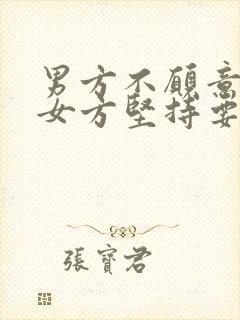 男方不願意
女方堅持要
張寶君